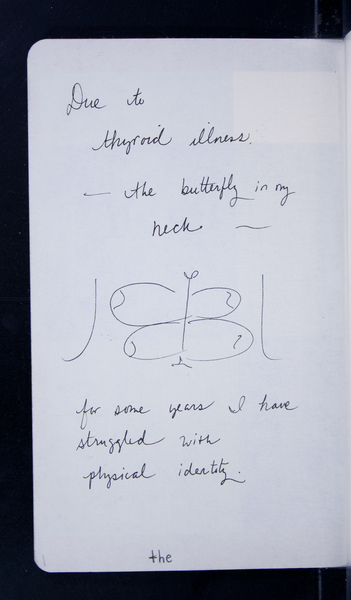 Due to
thyroid illness.
— the butterfly in my
neck. —
for some years I have
struggled with
physical identity.
the